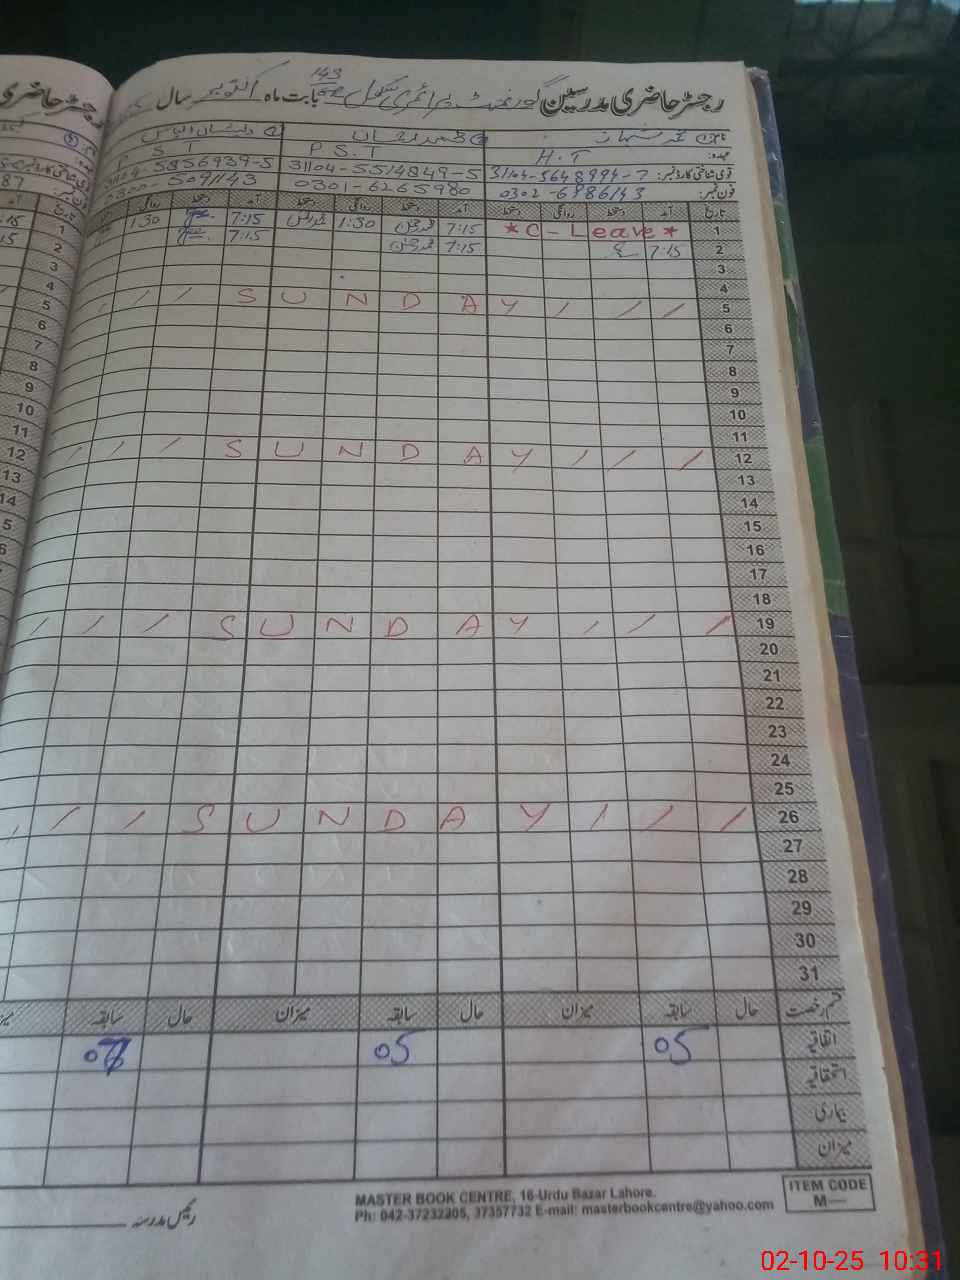 رجسٹر حاضری مدرسین گورنمنٹ پرائمری سکول 143 بابت ماہ اکتوبر سال
نام: محمد شہباز
عہدہ: H.T P.S.T P S T
قومی شناختی کارڈ نمبر: 31104-5648994-7 31104-5514849-5 31104-5856939-5
فون نمبر: 0302-6986143 0301-6265980 0300-5091143
تاریخ آمد دستخط روانگی دستخط آمد دستخط روانگی دستخط آمد دستخط روانگی
1 *C-Leave* 7:15 1:30 7:15 1:30
2 7:15 7:15 7:15
3
4
5 / / / S U N D A Y / / /
6
7
8
9
10
11
12 / / / S U N D A Y / / /
13
14
15
16
17
18
19 / / / S U N D A Y / / /
20
21
22
23
24
25
26 / / / S U N D A Y / / /
27
28
29
30
31
قسم رخصت حال سابقہ میزان حال سابقہ میزان حال سابقہ
اتفاقیہ 05 05
استحقاقیہ
بیماری
میزان
رئیس مدرسہ
MASTER BOOK CENTRE, 16-Urdu Bazar Lahore.
Ph: 042-37232205, 37357732 E-mail: masterbookcentre@yahoo.com
ITEM CODE
M—
02-10-25 10:31